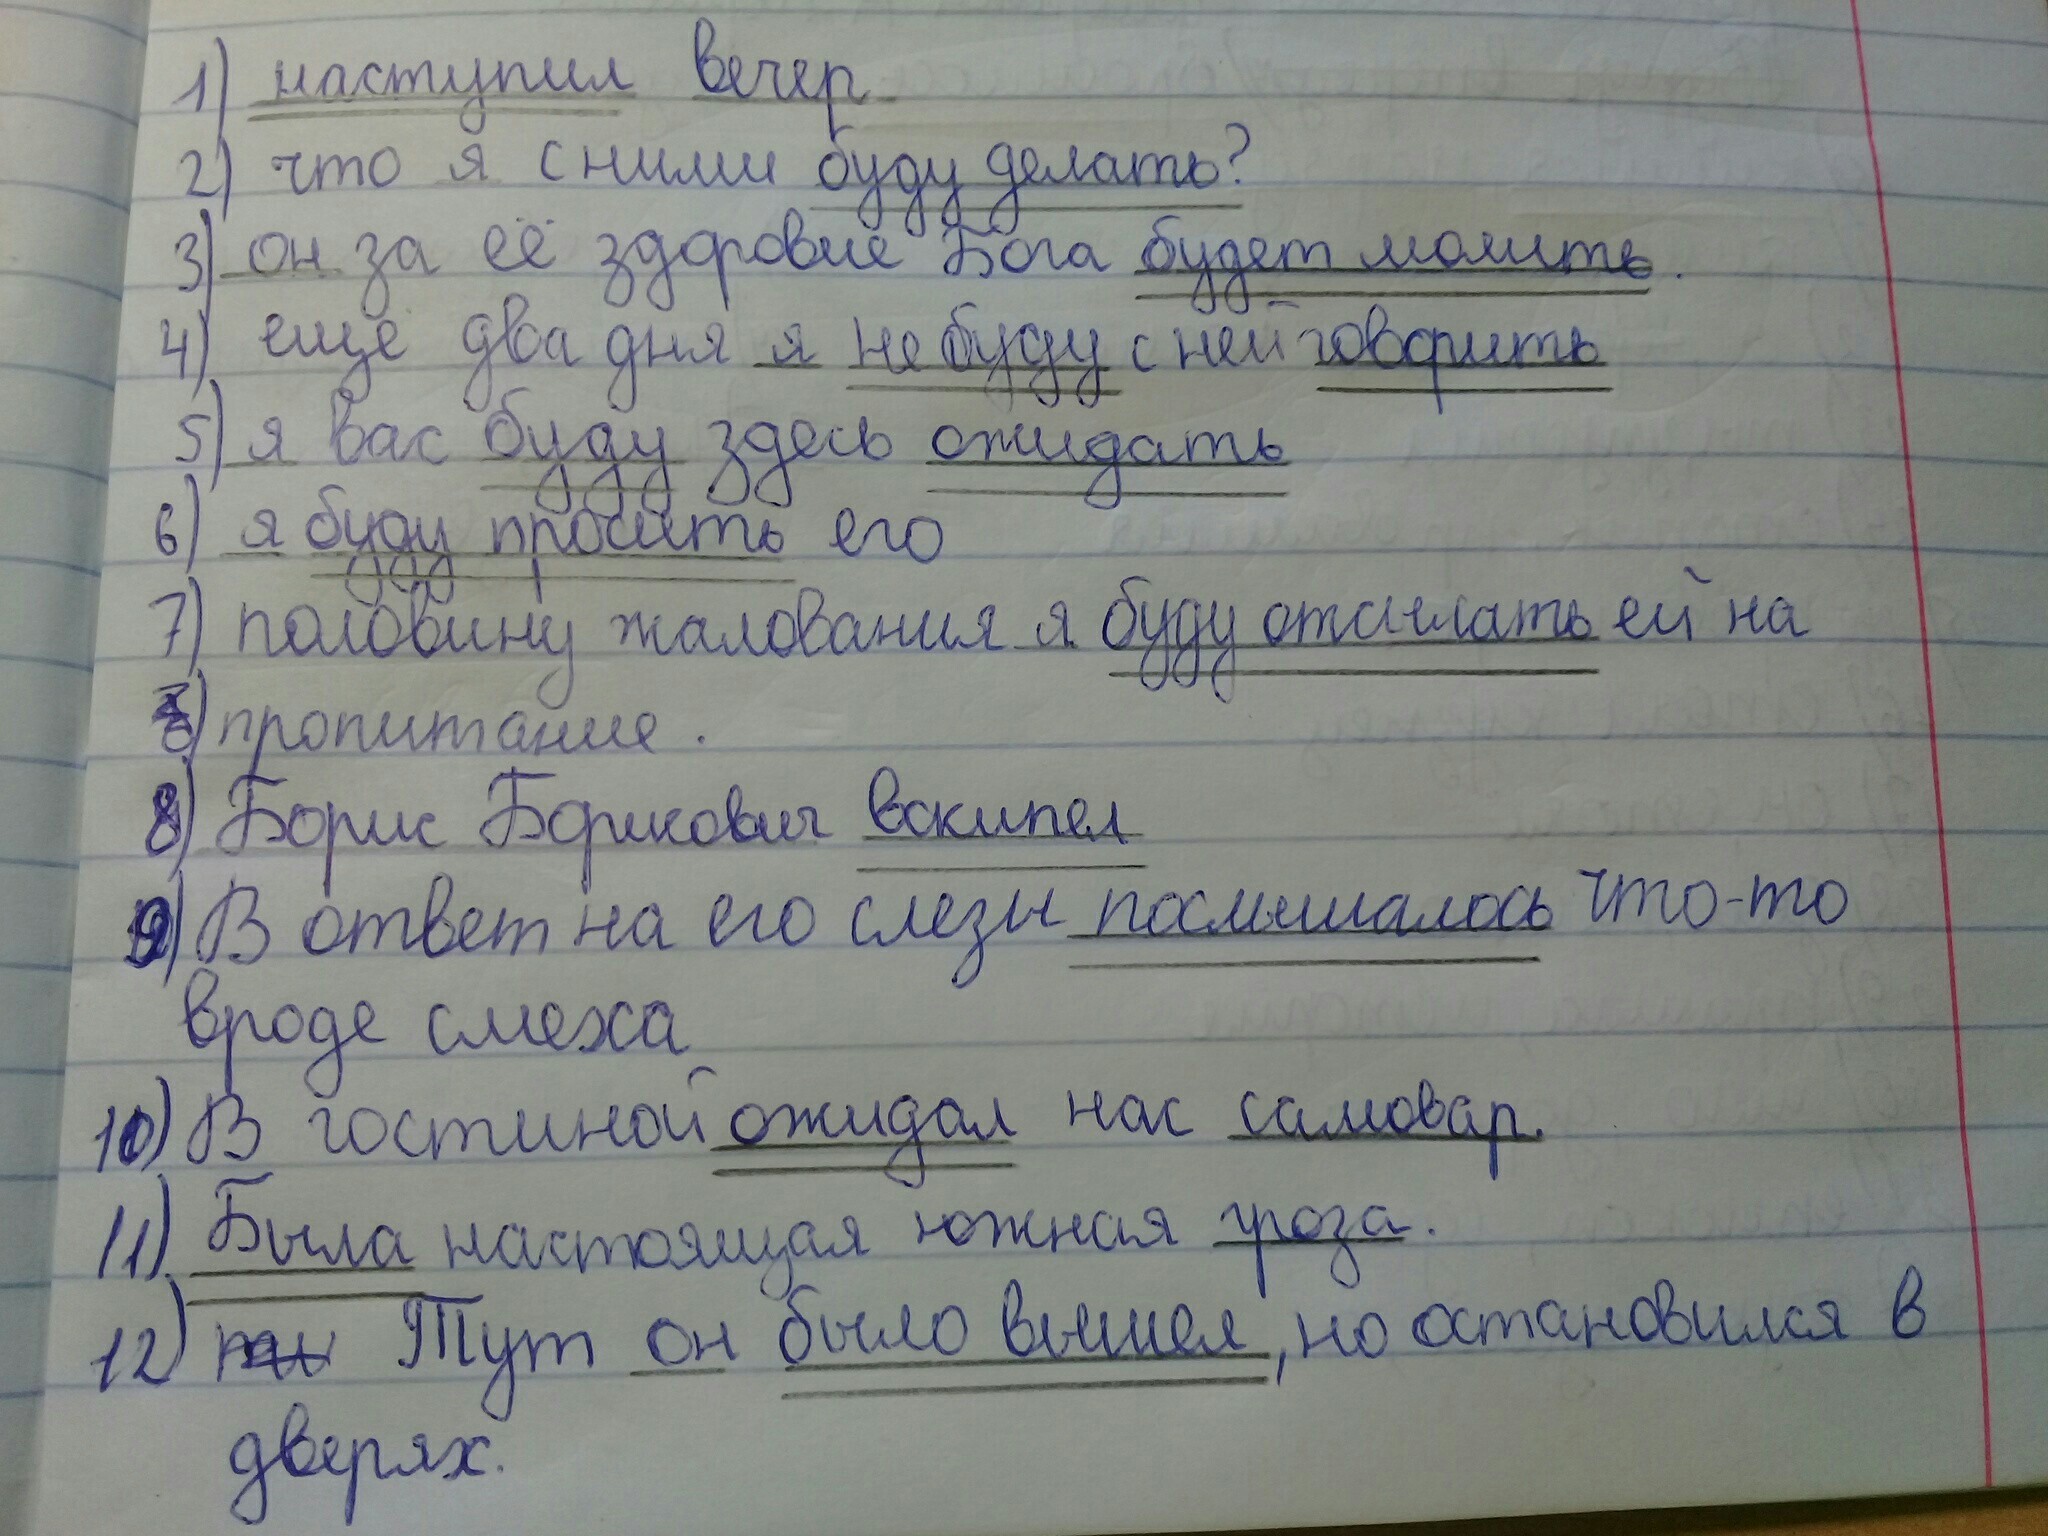 1) наступил вечер
2) что я с ними буду делать?
3) он за её здоровие Бога будет молить.
4) ещё два дня я не буду с ней говорить
5) я вас буду здесь ожидать
6) я буду просить его
7) половину жалования я буду отсылать ей на
пропитание.
8) Борис Борисович вскипел
9) В ответ на его слезы послышалось что-то
вроде смеха
10) В гостиной ожидал нас самовар.
11) Была настоящая южная гроза.
12) Тут он было вышел, но остановился в
дверях.